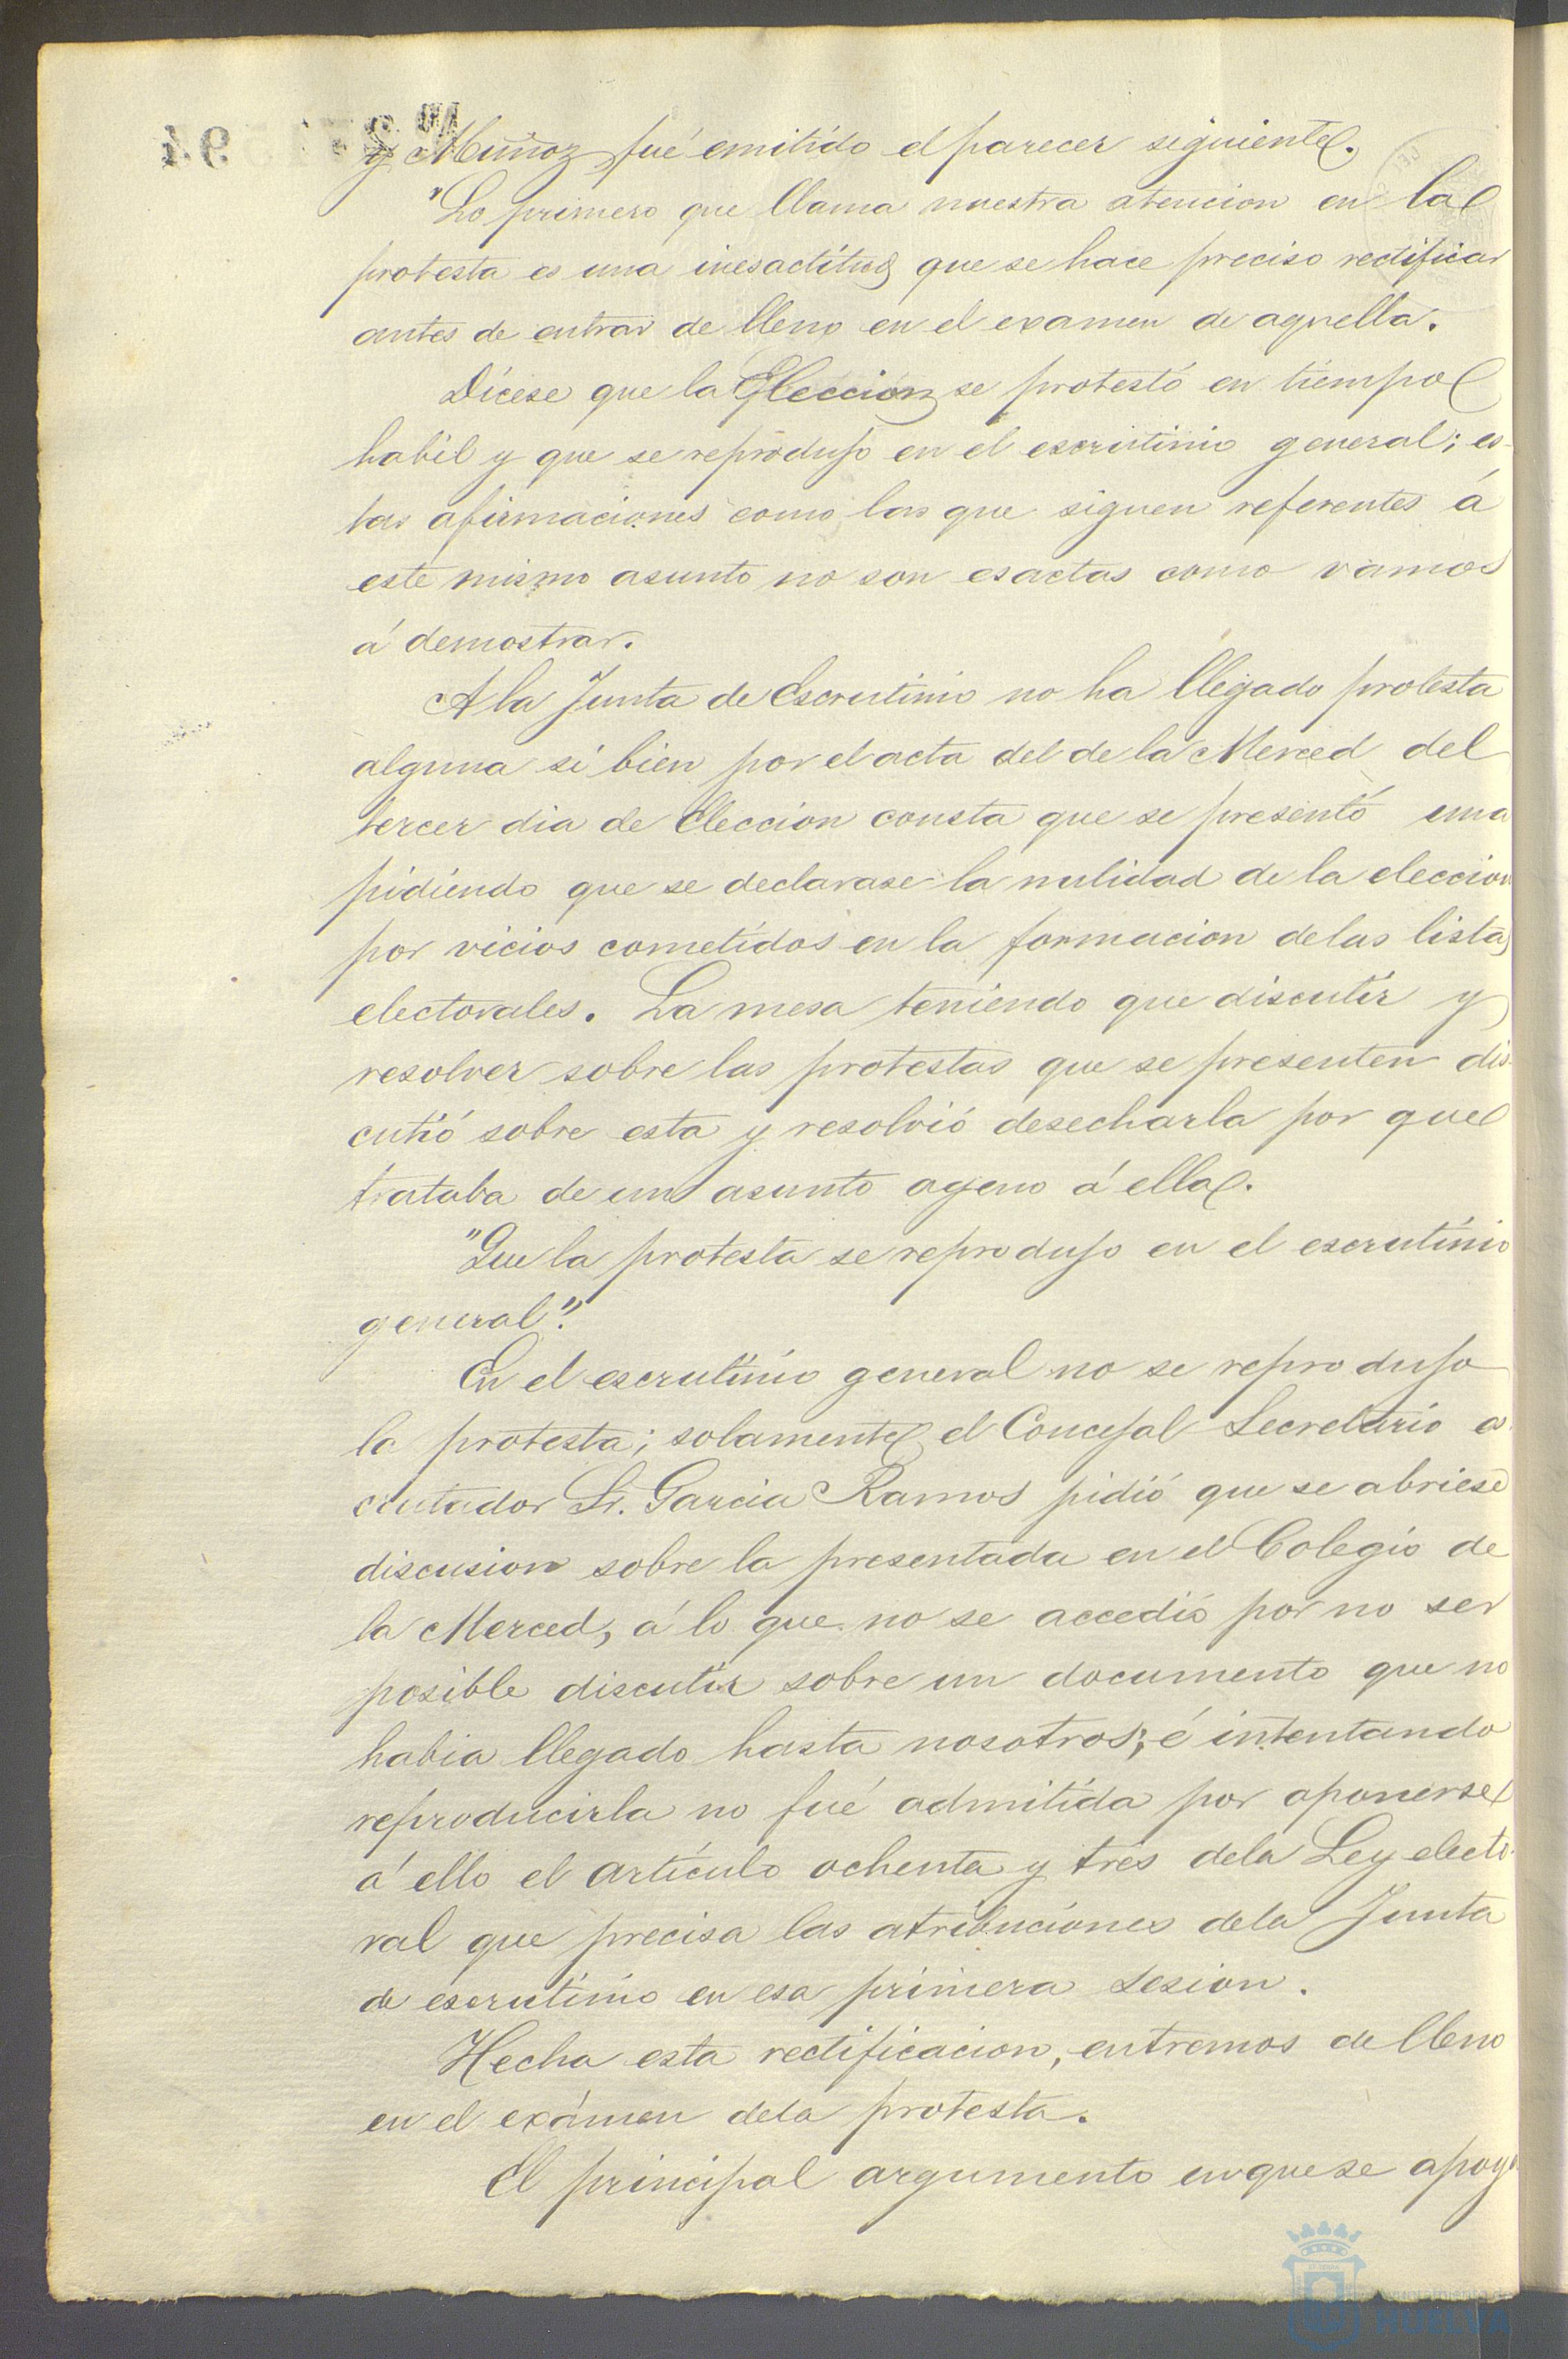 y Muñoz fué emitido el parecer siguiente.
"Lo primero que llama nuestra atencion en la
protesta es una inesactitud que se hace preciso rectificar
antes de entrar de lleno en el examen de aquella.
Dícese que la Eleccion se protestó en tiempo
habil y que se reprodujo en el escrutinio general; es-
tas afirmaciones como las que siguen referentes á
este mismo asunto no son esactas como vamos
á demostrar.
A la Junta de Escrutinio no ha llegado protesta
alguna si bien por el acta del de la Merced del
tercer dia de Eleccion consta que se presentó una
pidiendo que se declarase la nulidad de la eleccion
por vicios cometidos en la formacion de las listas
electorales. La mesa teniendo que discutir y
resolver sobre las protestas que se presenten dis-
cutió sobre esta y resolvió desecharla por que
trataba de un asunto ageno á ella.
"Que la protesta se reprodujo en el escrutinio
general".
En el escrutinio general no se reprodujo
la protesta; solamente el Concejal Secretario es-
crutador Sr. Garcia Ramos pidió que se abriese
discusion sobre la presentada en el Colegio de
la Merced, á lo que no se accedió por no ser
posible discutir sobre un documento que no
habia llegado hasta nosotros; é intentando
reproducirla no fué admitida por oponerse
á ello el artículo ochenta y tres dela Ley electo-
ral que precisa las atribuciones dela Junta
de escrutinio en esa primera sesion.
Hecha esta rectificacion, entremos de lleno
en el exámen dela protesta.
El principal argumento en que se apoya
HUELVA